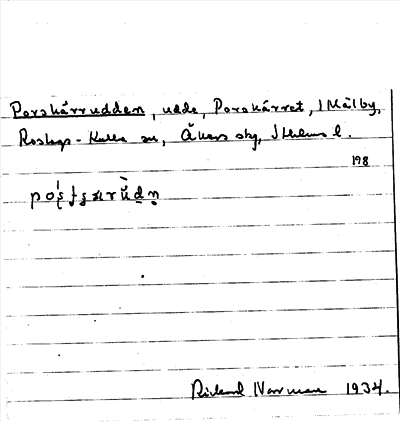 Porskärrudden, udde, Porskärret, 1 Målby,
Roslags-Kulla sn, Åkers skg, Sthlms l.
198
Rickard Norman 1934.